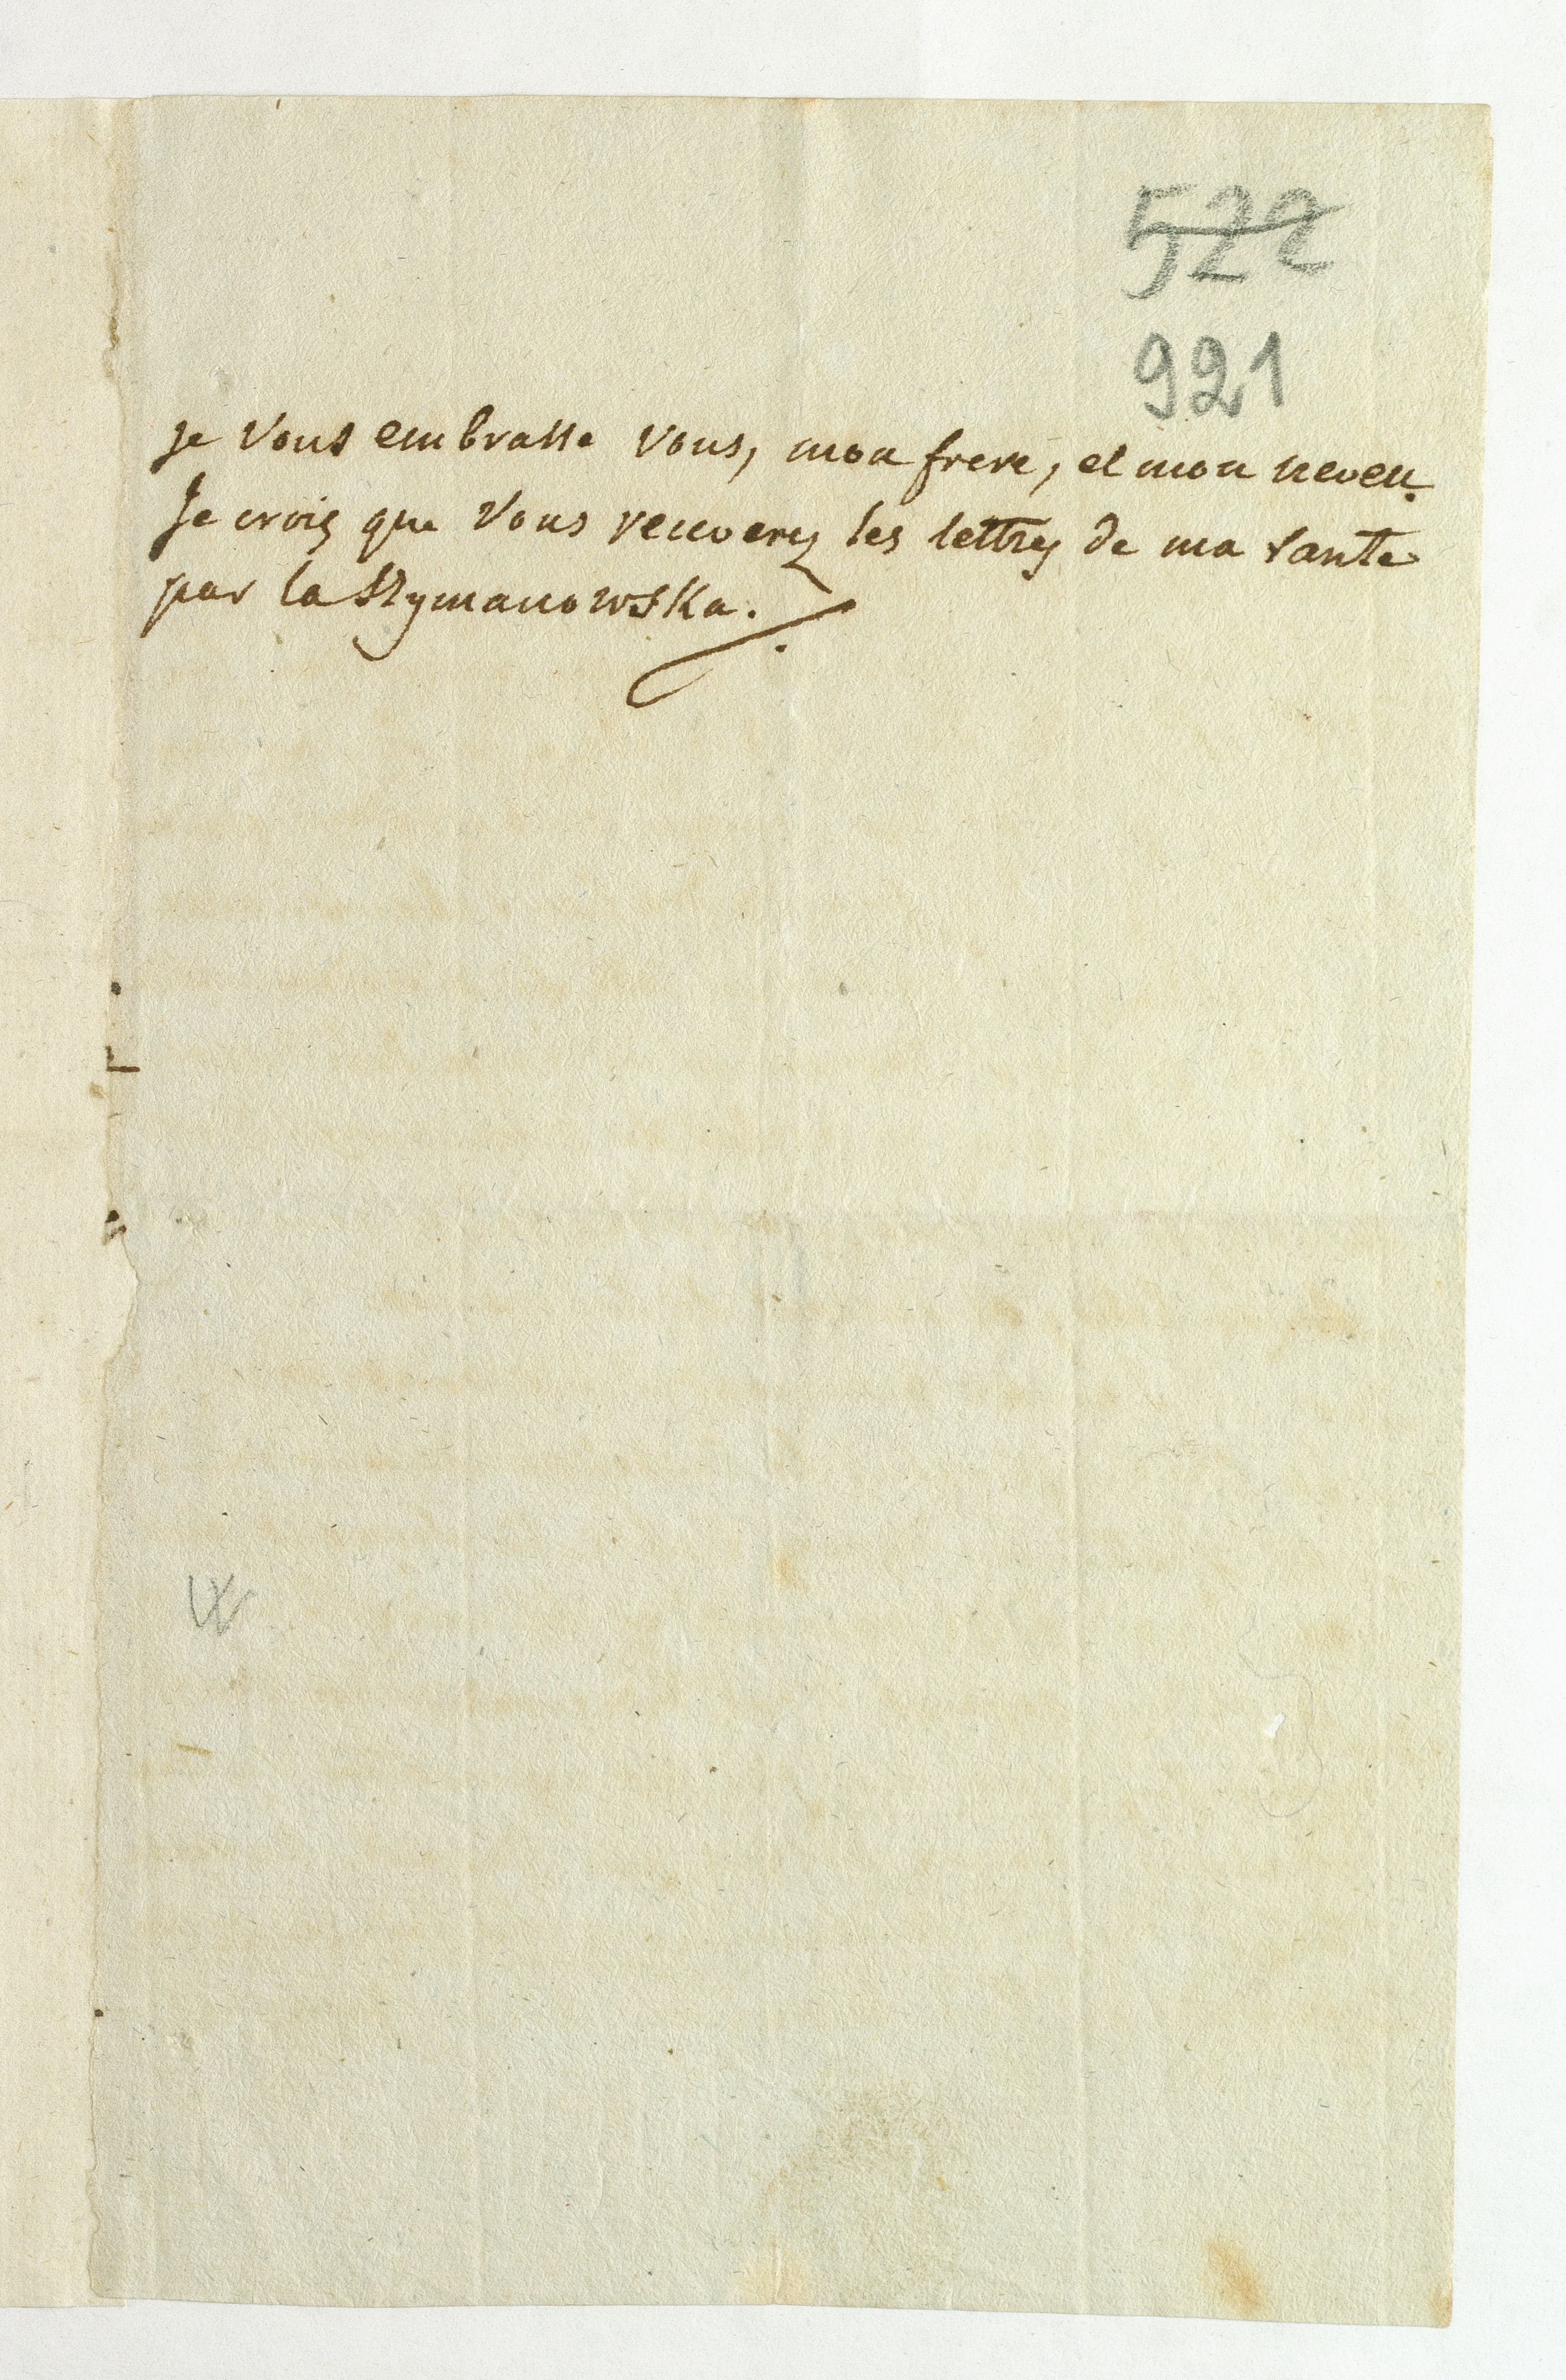 522
921
je vous embrasse vous, mon frere, et mon neveu.
Je crois que vous recevrez les lettres de ma tante
par la Szymanowska.